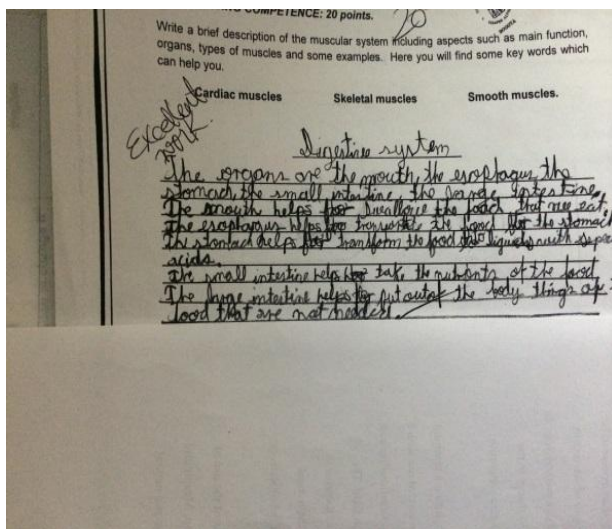 COMPETENCE: 20 points.
20
Write a brief description of the muscular system including aspects such as main function,
organs, types of muscles and some examples. Here you will find some key words which
can help you.
Cardiac muscles Skeletal muscles Smooth muscles.
Excellent
work.
Digestive system
The organs are the mouth, the esophagus, the
stomach, the small intestine, the large intestine.
The mouth helps the food that we eat.
The esophagus helps the food for the stomach
The stomach helps transform the food liquids with super
acids.
The small intestine helps take the nutrients of the food.
The large intestine helps for put out of the body things of
food that are not needed.